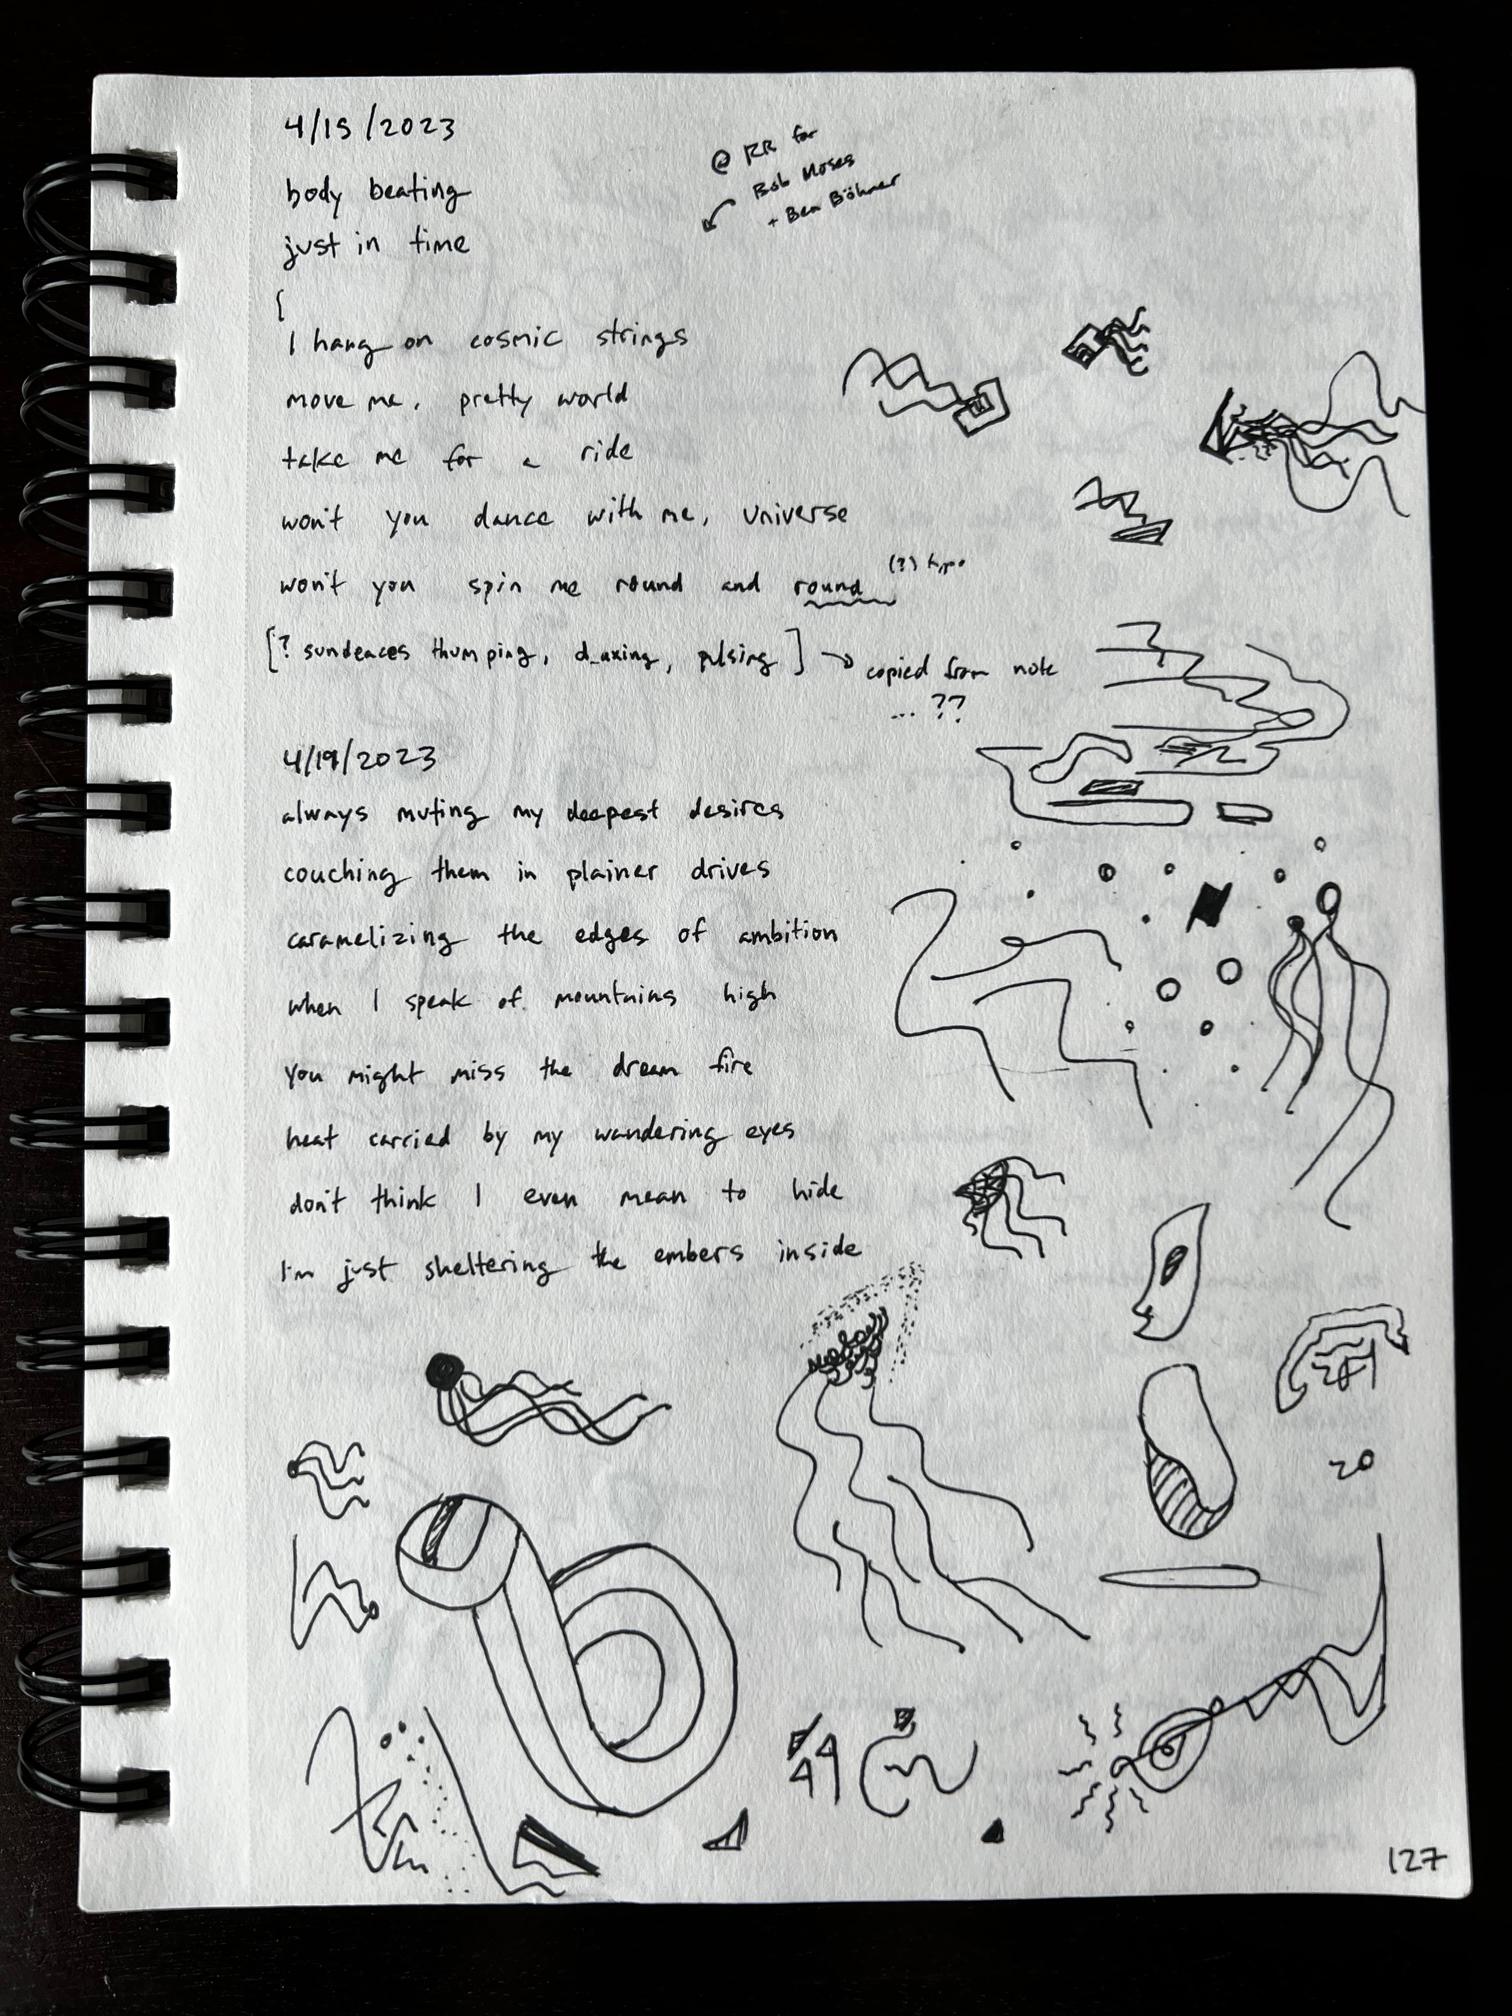 4/15/2023
@ RR for
Bob Moses
+ Ben Böhmer
body beating
just in time
I hang on cosmic strings
move me, pretty world
take me for a ride
won't you dance with me, universe
won't you spin me round and round (?) typo
[? sundeaces thumping, d_axing, pulsing] → copied from note
... ??
4/19/2023
always muting my deepest desires
couching them in plainer drives
caramelizing the edges of ambition
when I speak of mountains high
you might miss the dream fire
heat carried by my wandering eyes
don't think I even mean to hide
I'm just sheltering the embers inside
127